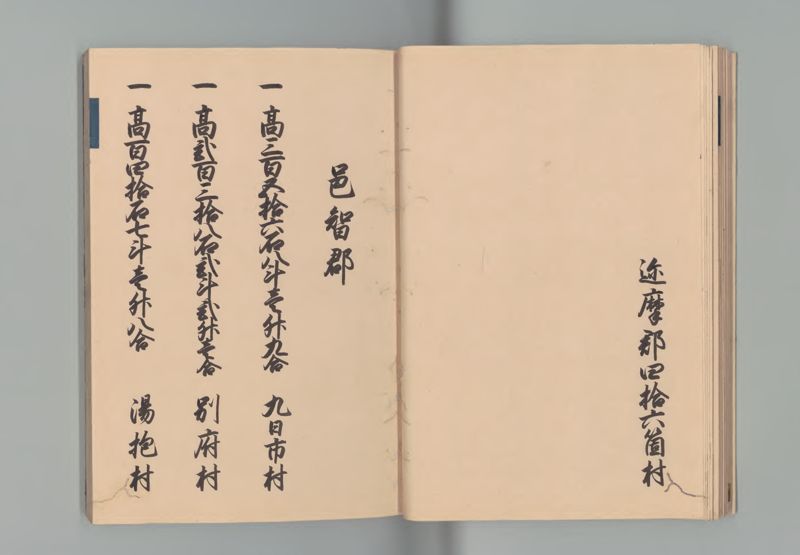 迩摩郡四拾六箇村
邑智郡
一高三百五拾六石八斗壱升九合 九日市村
一高弐百三拾八石弐斗弐升壱合 別府村
一高百四拾石七斗壱升八合 湯抱村